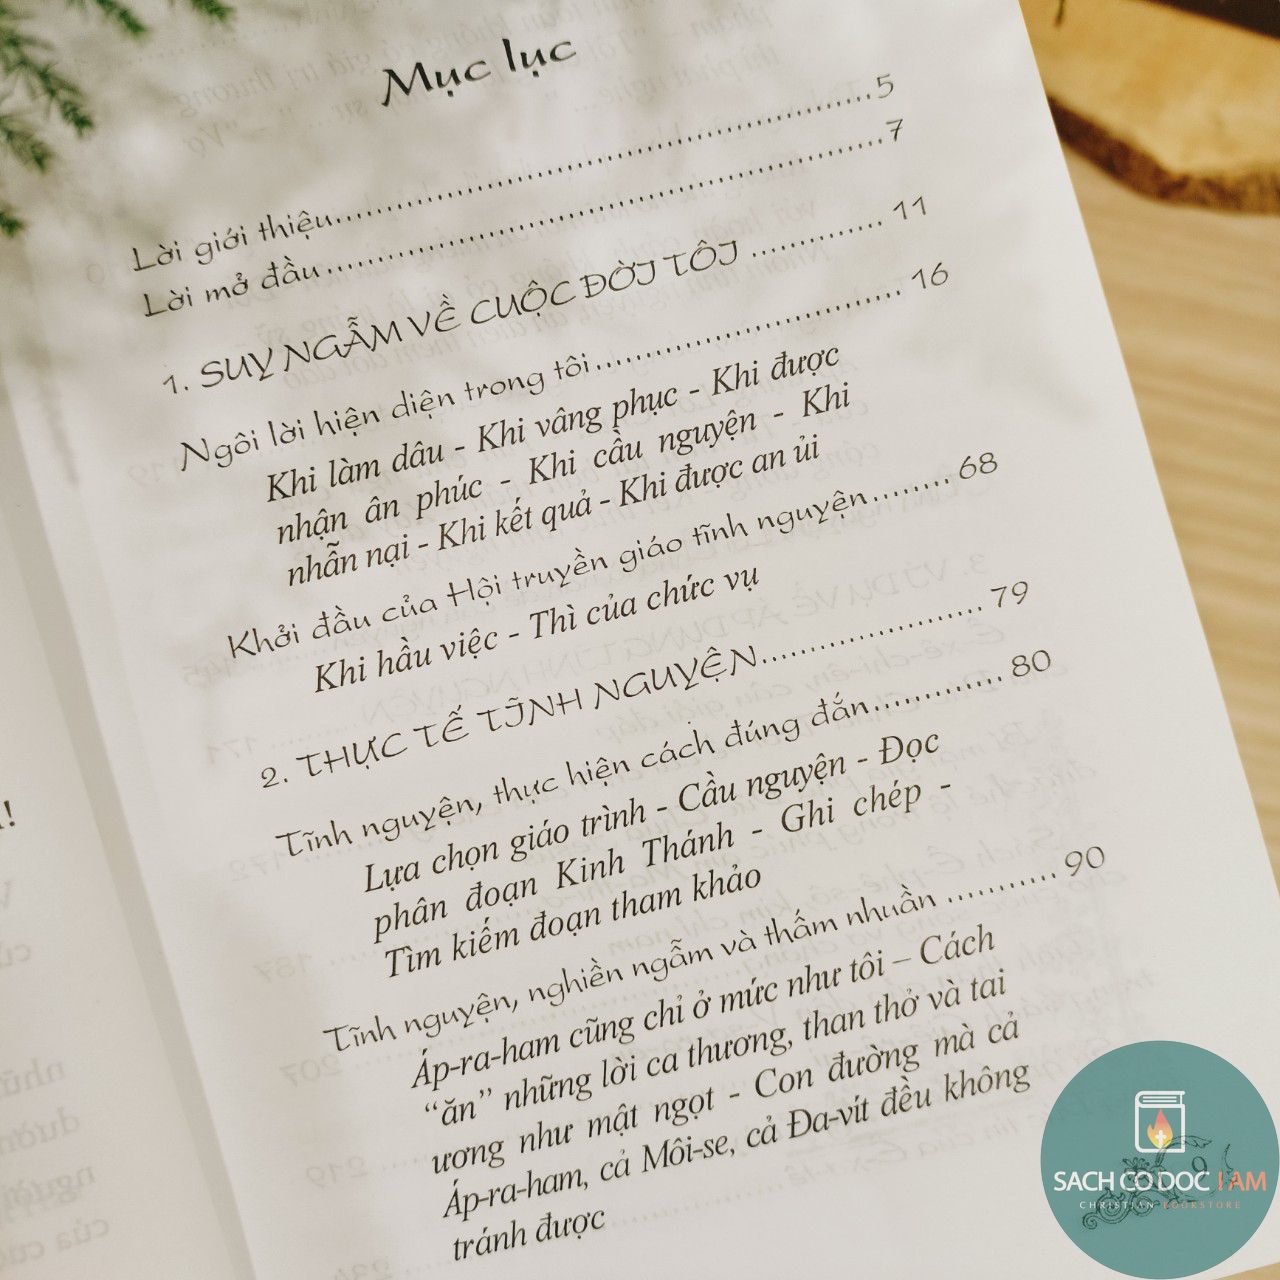 Mục lục
Lời giới thiệu......5
Lời mở đầu......7
1. SUY NGẪM VỀ CUỘC ĐỜI TÔI ...... 11
Ngôi lời hiện diện trong tôi...... 16
Khi làm dâu - Khi vâng phục - Khi được
nhận ân phúc - Khi cầu nguyện - Khi
nhẫn nại - Khi kết quả - Khi được an ủi
Khởi đầu của Hội truyền giáo tĩnh nguyện...... 68
Khi hầu việc - Thì của chức vụ
2. THỰC TẾ TĨNH NGUYỆN...... 79
Tĩnh nguyện, thực hiện cách đúng đắn...... 80
Lựa chọn giáo trình - Cầu nguyện - Đọc
phân đoạn Kinh Thánh - Ghi chép -
Tìm kiếm đoạn tham khảo
Tĩnh nguyện, nghiền ngẫm và thấm nhuần ...... 90
Áp-ra-ham cũng chỉ ở mức như tôi – Cách
“ăn” những lời ca thương, than thở và tai
ương như mật ngọt - Con đường mà cả
Áp-ra-ham, cả Môi-se, cả Đa-vít đều không
tránh được
9
SACH CO DOC I AM
CHRISTIAN BOOKSTORE